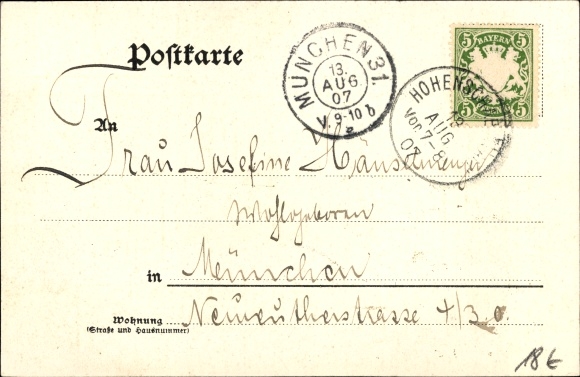 Postkarte
MÜNCHEN 31.
13.
AUG.
07
V. 9-10 b
BAYERN
5 5
5 5
HOHENSCH
13
AUG
Vor. 7-8
07
An
Frau Josefine
Wohlgeboren
in München
Neureutherstrasse 4/3. o.
Wohnung
(Straße und Hausnummer)
18€